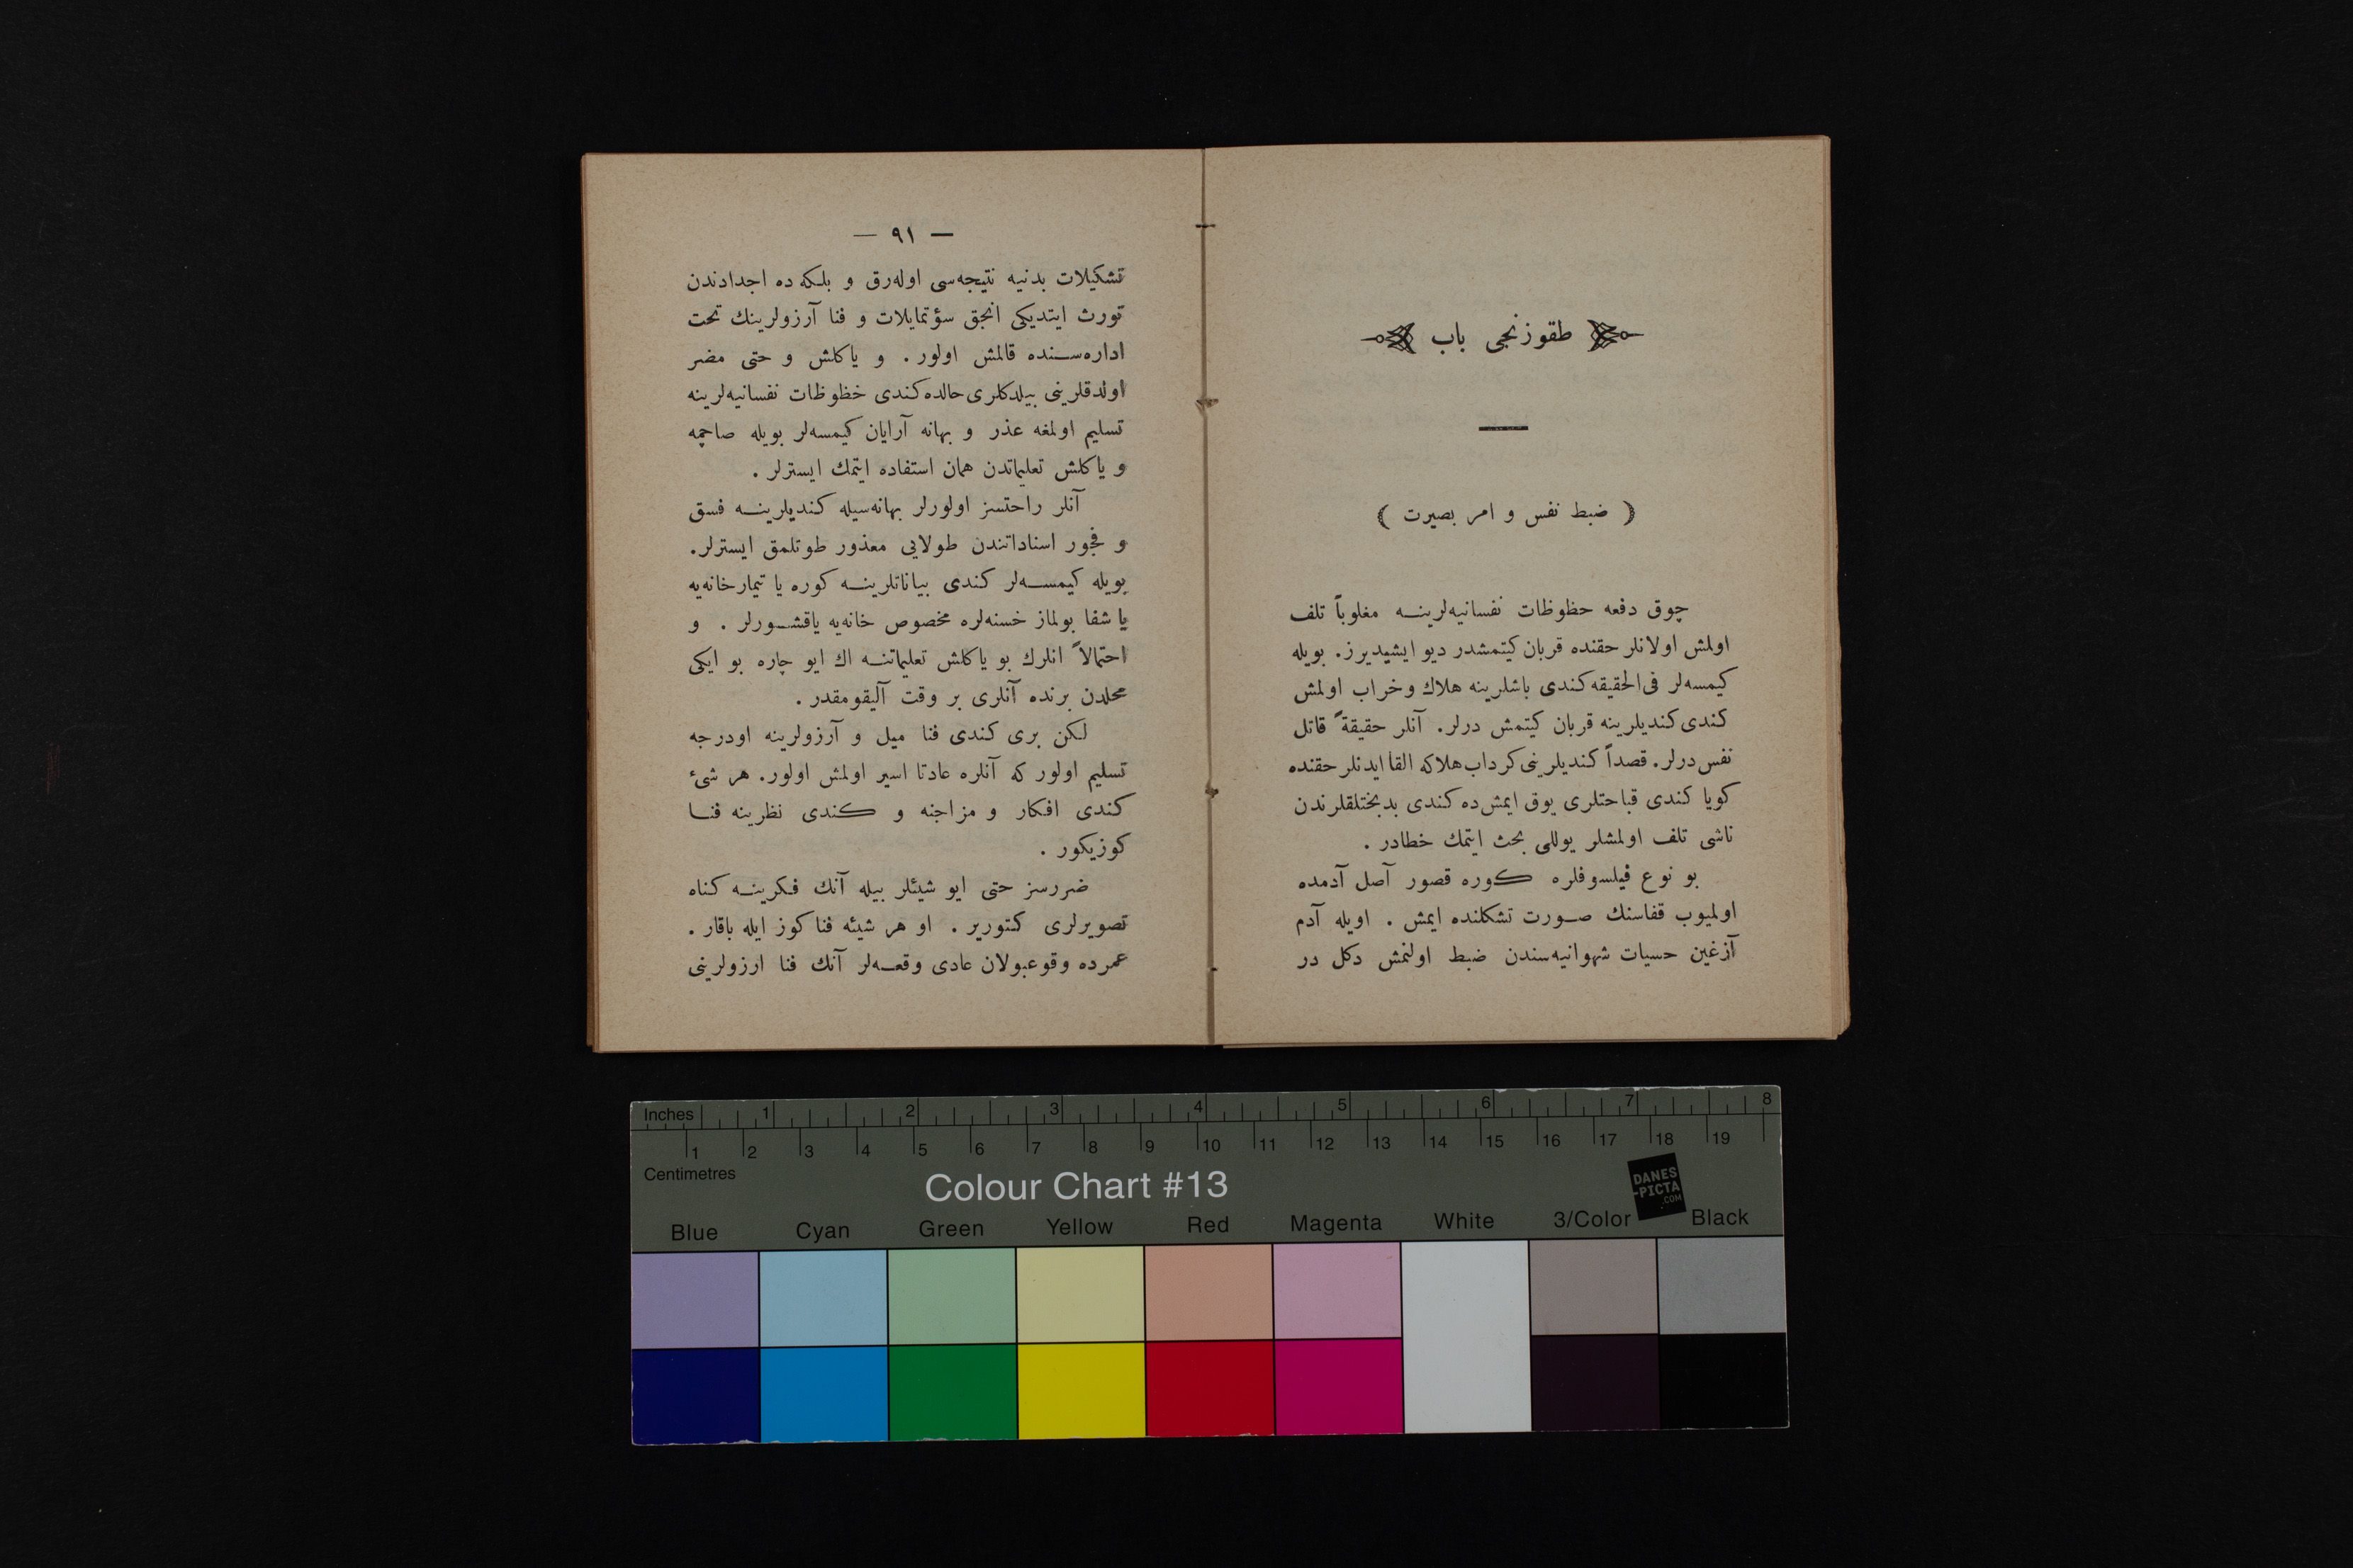 طقوزنجی باب
( ضبط نفس و امر بصیرت )
چوق دفعه حظوظات نفسانیه‌لرینــه مغلوباً تلف
اولمش اولانلر حقنده قربان كیتمشدر دیو ایشیدیرز. بویله
كیمسه‌لر فی‌الحقیقه كندی باشلرینه هلاك وخراب اولمش
كندی كندیلرینه قربان كیتمش درلر. آنلر حقیقةً قاتل
نفس درلر. قصداً كندیلرینی كرداب هلاكه القا ایدنلر حقنده
كویا كندی قباحتلری یوق ایمش‌ده كندی بدبختلقلرندن
ناشی تلف اولمشلر یوللی بحث ایتمك خطادر .
بو نوع فیلسوفلره كوره قصور آصل آدمده
اولمیوب قفاسنك صــورت تشكلنده ایمش . اویله آدم
آزغین حسیات شهوانیه‌سندن ضبط اولنمش دكل در
— ٩١ —
تشكیلات بدنیه نتیجه‌سی اوله‌رق و بلكه ده اجدادندن
تورث ایتدیكی انجق سؤتمایلات و فنا آرزولرینك تحت
اداره‌ســنده قالمش اولور . و یاكلش و حتی مضر
اولدقلرینی بیلدكلری حالده كندی خظوظات نفسانیه‌لرینه
تسلیم اولمغه عذر و بهانه آرایان كیمسه‌لر بویله صاچمه
و یاكلش تعلیماتدن همان استفاده ایتمك ایسترلر .
آنلر راحتسز اولورلر بهانه‌سیله كندیلرینــه فسق
و فجور اسناداتندن طولایی معذور طوتلمق ایسترلر.
بویله كیمســه‌لر كندی بیاناتلرینــه كوره یا تیمارخانه‌یه
یا شفا بولماز خسنه‌لره مخصوص خانه‌یه یاقشــورلر . و
احتمالاً انلرك بو یاكلش تعلیماتنــه اك ایو چاره بو ایكی
محلدن برنده آنلری بر وقت آلیقومقدر .
لكن بری كندی فنا میل و آرزولرینه اودرجه
تسلیم اولور كه آنلره عادتا اسیر اولمش اولور. هر شیٔ
كندی افكار و مزاجنه و كندی نظرینه فنــا
كوزیكور .
ضررسز حتی ایو شیئلر بیله آنك فكرینــه كناه
تصویرلری كتوریر . او هر شیئه فنا كوز ایله باقار .
عمرده وقوعبولان عادی وقعــه‌لر آنك فنا ارزولرینی
Inches 1 2 3 4 5 6 7 8
1 2 3 4 5 6 7 8 9 10 11 12 13 14 15 16 17 18 19
Centimetres
Colour Chart #13
DANES
-PICTA
.COM
Blue Cyan Green Yellow Red Magenta White 3/Color Black